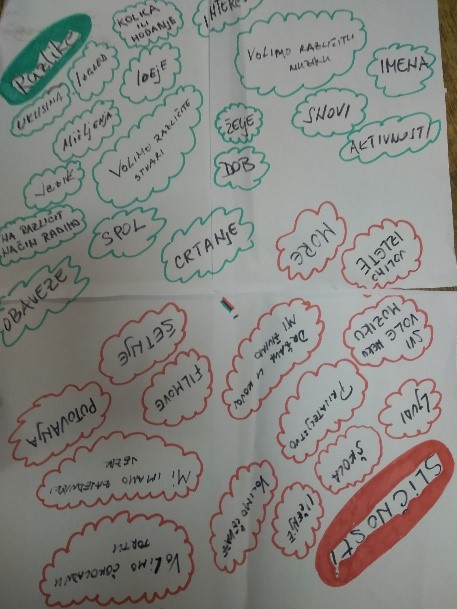 Razlike
KOLKA
ILI
HODANJE
VOLIMO RAZLIČITU
MUZIKU
IMENA
IDEJE
UKUSIMA
MIŠLJENJA
VOLIMO RAZLIČITE
STVARI
ŽELJE
SNOVI
AKTIVNOSTI
DOB
JEZIK
NA RAZLIČIT
NAČIN RADIMO
SPOL
CRTANJE
OBAVEZE
MORE
VOLIMO
IZLETE
SLIČNOSTI
LJUDI
SVI
VOLE NEKU
MUZIKU
ŠKOLA
PRIJATELJSTVO
DRŽAVA U KOJOJ
MI ŽIVIMO
UČENJE
FILMOVE
ŠETNJE
PUTOVANJA
MI IMAMO ZAJEDNIČKI
JEZIK
VOLIMO ČOKOLADNU
TORTU